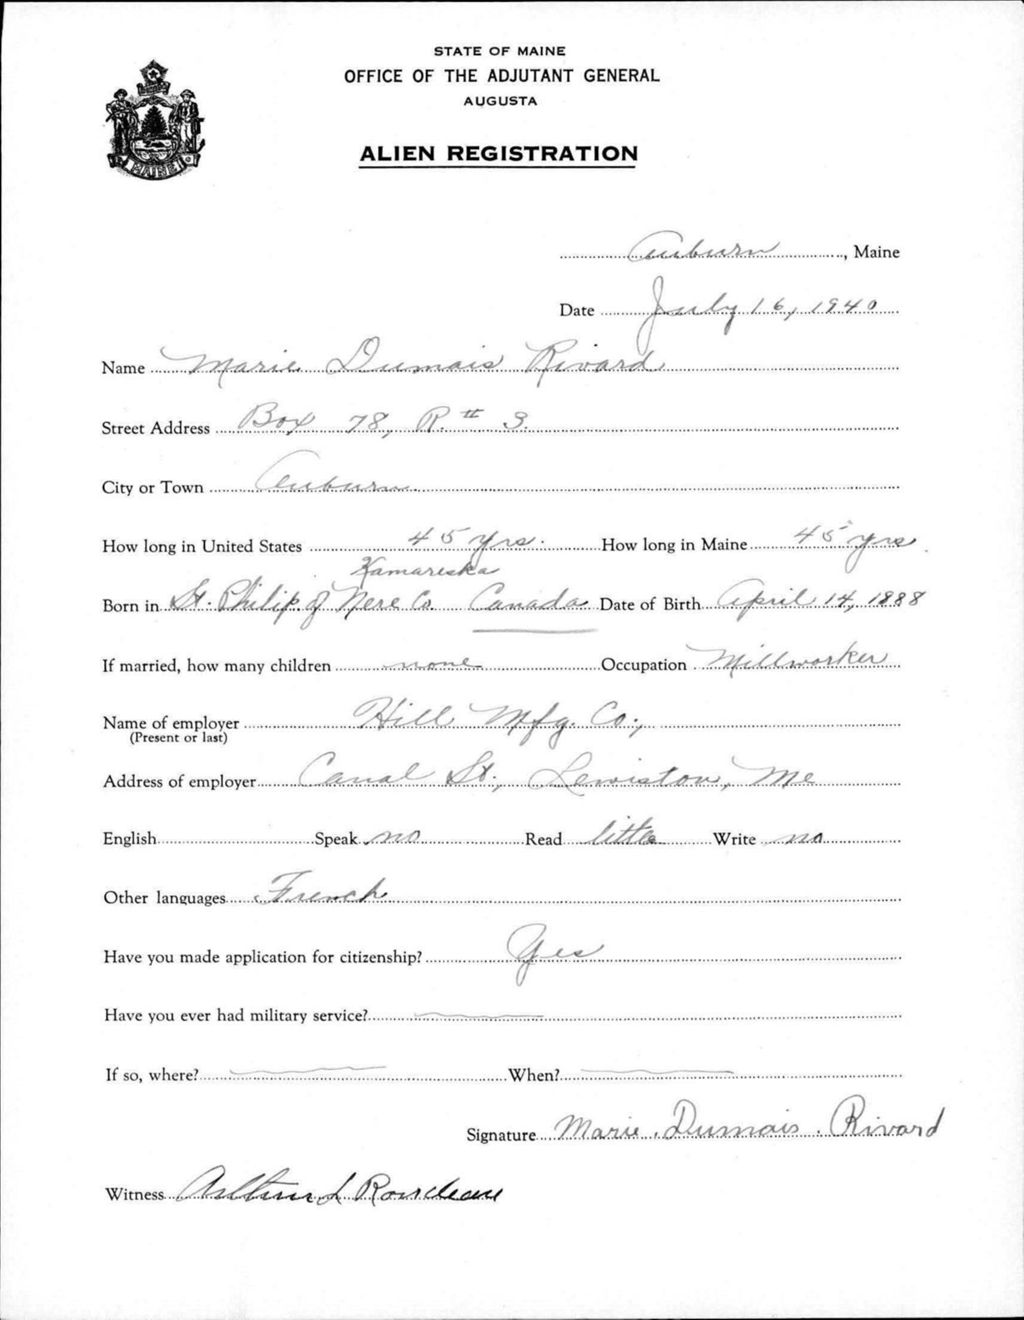 STATE OF MAINE
OFFICE OF THE ADJUTANT GENERAL
AUGUSTA
ALIEN REGISTRATION
MAINE
Auburn, Maine
Date July 16, 1940
Name Marie Dumais Rivard
Street Address Box 78, R. # 3.
City or Town Auburn
How long in United States 45 yrs. How long in Maine 45 yrs.
Kamareska
Born in St. Philip of Nere Co. Canada Date of Birth April 14, 1888
If married, how many children none Occupation Millworker
Name of employer Hill Mfg. Co.,
(Present or last)
Address of employer Canal St., Lewiston, Me
English Speak no Read little Write no
Other languages French
Have you made application for citizenship? Yes
Have you ever had military service?
If so, where? When?
Signature Marie. Dumais. Rivard
Witness L